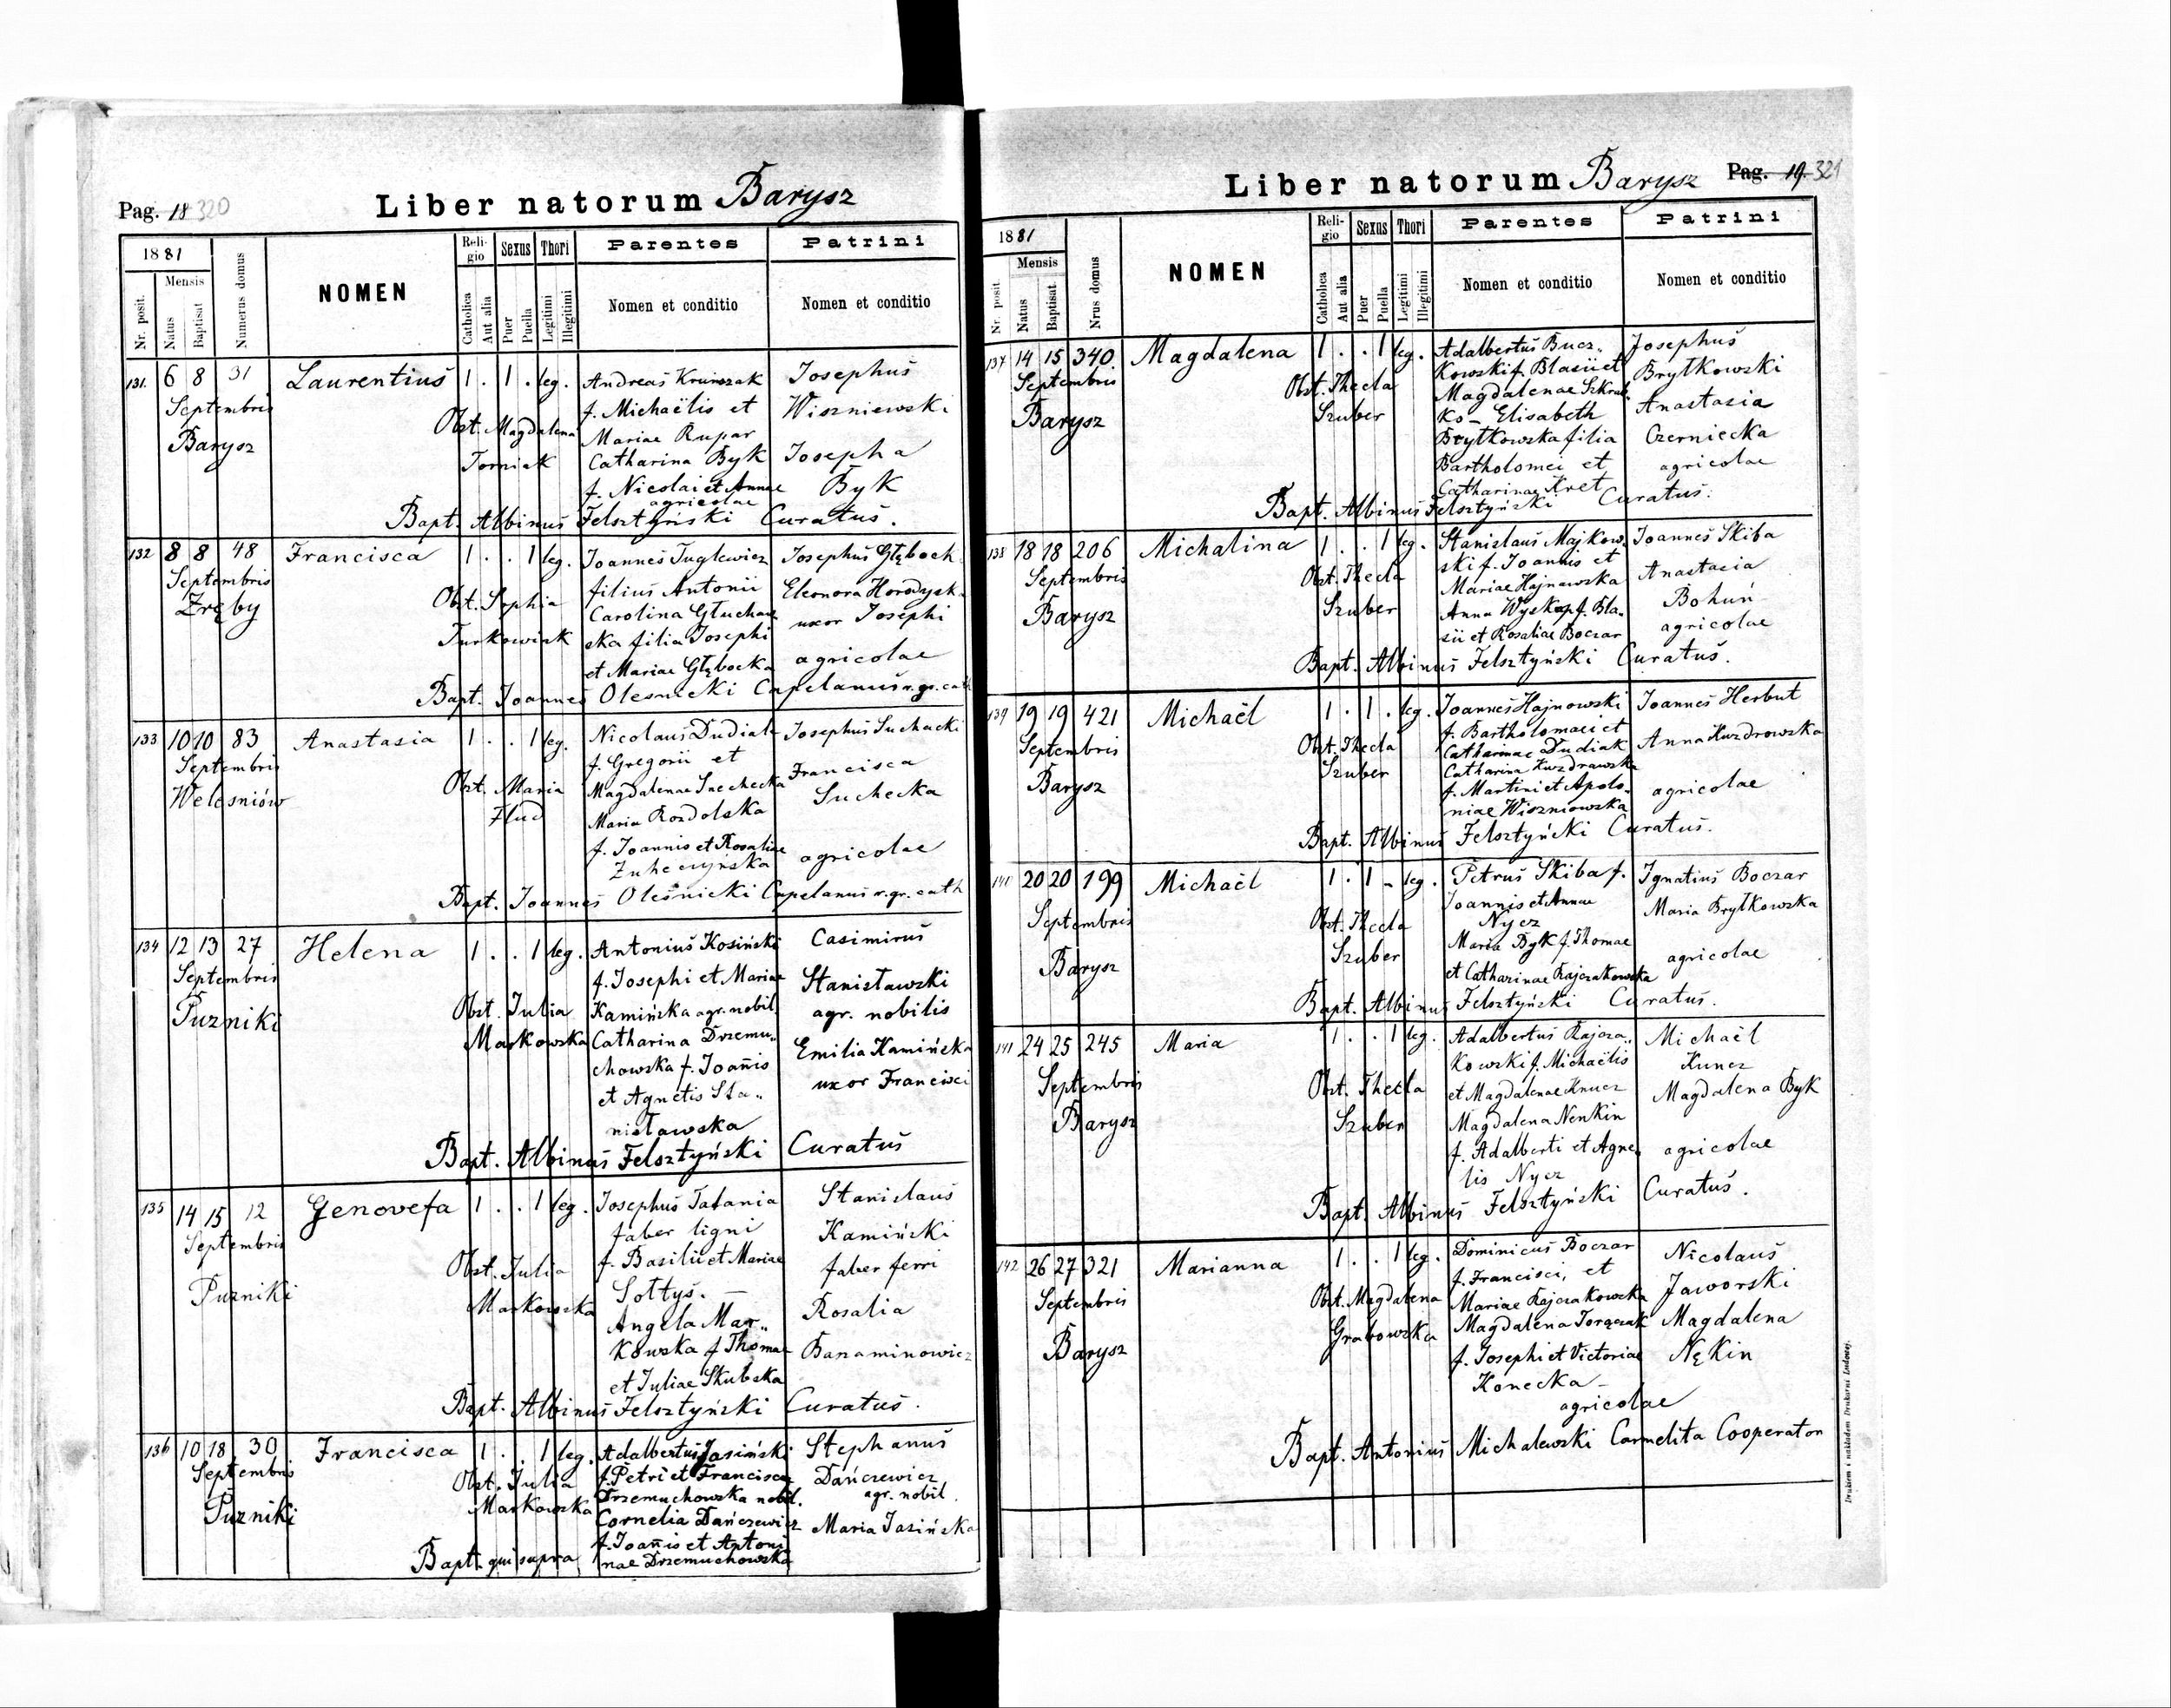 Pag. 18 320
Liber natorum Barysz
1881
Mensis
Nr. posit.
Natus
Baptisat
Numerus domus
NOMEN
Religio
Catholica
Aut alia
Sexus
Puer
Puella
Thori
Legitimi
Illegitimi
Parentes
Nomen et conditio
Patrini
Nomen et conditio
131. 6 8 31 Laurentius 1 . 1 . leg.
Septembris
Barysz
Obst. Magdalena
Torniak
Andreas
f. Michaëlis et
Mariae Rupar
Catharina Byk
f. Nicolai et Annae
agricolae
Josephus
Wiszniewski
Josepha
Byk
Bapt. Albinus Felsztyński Curatus.
132 8 8 48 Francisca 1 . . 1 leg.
Septembris
Zręby
Obst. Sophia
Turkowiak
Joannes Tuglewicz
filius Antonii
Carolina Głuchow
ska filia Josephi
et Mariae Głębocka
Josephus Głębock
Eleonora Horodysk
uxor Josephi
agricolae
Bapt. Joannes Olesnicki Capelanus r. gr. cath
133 10 10 83 Anastasia 1 . . 1 leg.
Septembris
Weleśniów
Obst. Maria
Hud
Nicolaus Dudiak
f. Gregorii et
Magdalenae Suchecka
Maria Rozdolska
f. Joannis et Rosaliae
Josephus Suchecki
Francisca
Suchecka
agricolae
Bapt. Joannes Oleśnicki Capelanus r. gr. cath
134 12 13 27 Helena 1 . . 1 leg.
Septembris
Puzniki
Obst. Julia
Markowska
Antonius Kosiński
f. Josephi et Mariae
Kamińska agr. nobil.
Catharina Drzemu„
chowska f. Joan̄is
et Agnetis Sta„
nisławska
Casimirus
Stanisławski
agr. nobilis
Emilia Kamińska
uxor Francisci
Bapt. Albinus Felsztyński Curatus
135 14 15 12 Genovefa 1 . . 1 leg.
Septembris
Puzniki
Obst. Julia
Markowska
Josephus Tatania
faber ligni
f. Basilii et Mariae
Sołtys. —
Angela Mar„
kowska f Thomae
et Juliae Skubska
Stanislaus
Kamiński
faber ferri
Rosalia
Banaminowicz
Bapt. Albinus Felsztyński Curatus.
136 10 18 30 Francisca 1 . . 1 leg.
Septembris
Puzniki
Obst. Julia
Markowska
Adalbertus Jasiński
f. Petri et Francisca
Drzemuchowska nobil.
Cornelia Dańczewicz
f. Joan̄is et Antoni
nae Drzemuchowska
Stephanus
Dańczewicz
agr. nobil.
Maria Jasińska
Bapt. qui supra
Liber natorum Barysz
Pag. 19. 321
1881
Mensis
Nr. posit.
Natus
Baptisat.
Nrus domus
NOMEN
Religio
Catholica
Aut alia
Sexus
Puer
Puella
Thori
Legitimi
Illegitimi
Parentes
Nomen et conditio
Patrini
Nomen et conditio
137 14 15 340. Magdalena 1 . . 1 leg.
Septembris
Barysz
Obst. Thecla
Szuber
Adalbertus Bucz„
kowski f. Blasii et
Magdalenae Szkrab
ko – Elisabeth
Brytkowska filia
Bartholomei et
Catharinae Kret
Josephus
Brytkowski
Anastasia
Czerniecka
agricolae
Bapt. Albinus Felsztyński Curatus.
138 18 18 206 Michalina 1 . . 1 leg.
Septembris
Barysz
Obst. Thecla
Szuber
Stanislaus Majkow„
ski f. Joannis et
Mariae Hajnowska
Anna Wyskop f. Bla„
sii et Rosaliae Boczar
Joannes Skiba
Anastasia
Bohuń
agricolae
Bapt. Albinus Felsztyński Curatus.
139 19 19 421 Michaël 1 . 1 . leg.
Septembris
Barysz
Obst. Thecla
Szuber
Joannes Hajnowski
f. Bartholomaei et
Catharinae Dudiak
Catharina Kuzdrowska
f. Martini et Apolo„
niae Wiszniowska
Joannes Herbut
Anna Kuzdrowska
agricolae
Bapt. Albinus Felsztyński Curatus.
140 20 20 199 Michaël 1 . 1 – leg.
Septembris
Barysz
Obst. Thecla
Szuber
Petrus Skiba f.
Joannis et Annae
Nycz
Maria Byk f. Thomae
et Catharinae Rajczakowska
Ignatius Boczar
Maria Brytkowska
agricolae
Bapt. Albinus Felsztyński Curatus.
141 24 25 245 Maria 1 . . 1 leg.
Septembris
Barysz
Obst. Thecla
Szuber
Adalbertus Rajcza„
kowski f. Michaëlis
et Magdalenae Knucz
Magdalena Nenkin
f. Adalberti et Agne„
tis Nycz
Michaël
Kuncz
Magdalena Byk
agricolae
Bapt. Albinus Felsztyński Curatus.
142 26 27 321 Marianna 1 . . 1 leg.
Septembris
Barysz
Obst. Magdalena
Grabowska
Dominicus Boczar
f. Francisci, et
Mariae Rajczakowska
Magdalena Torączak
f. Josephi et Victoriae
Konecka –
agricolae
Nicolaus
Jaworski
Magdalena
Nękin
Bapt. Antonius Michalewski Carmelita Cooperator
Drukiem i nakładem Drukarni Ludowej.